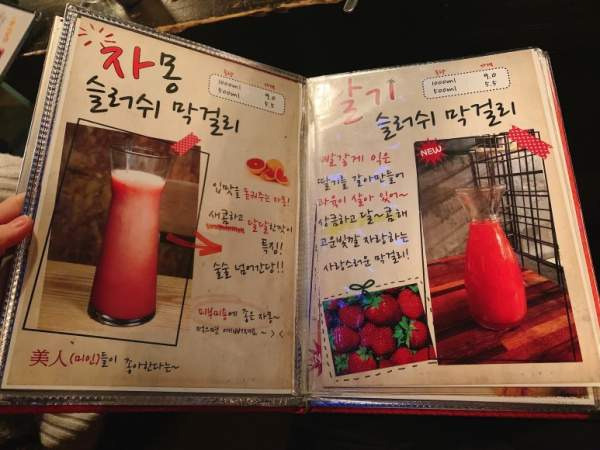 자몽
슬러쉬 막걸리
용량 가격
1000ml 9.0
500ml 5.5
입맛을 돋궈주는 자몽!
새콤하고 달달한맛이
특징!
술술 넘어간당!!
피부미용에 좋은 자몽~
먹으면 예뻐져요 ~ > <
美人(미인)들이 좋아한다는~
딸기
슬러쉬 막걸리
용량 가격
1000ml 9.0
500ml 5.5
빨갛게 익은
딸기를 갈아만들어
과육이 살아 있어~
상큼하고 달~콤해
고운빛깔 자랑하는
사랑스러운 막걸리!
NEW